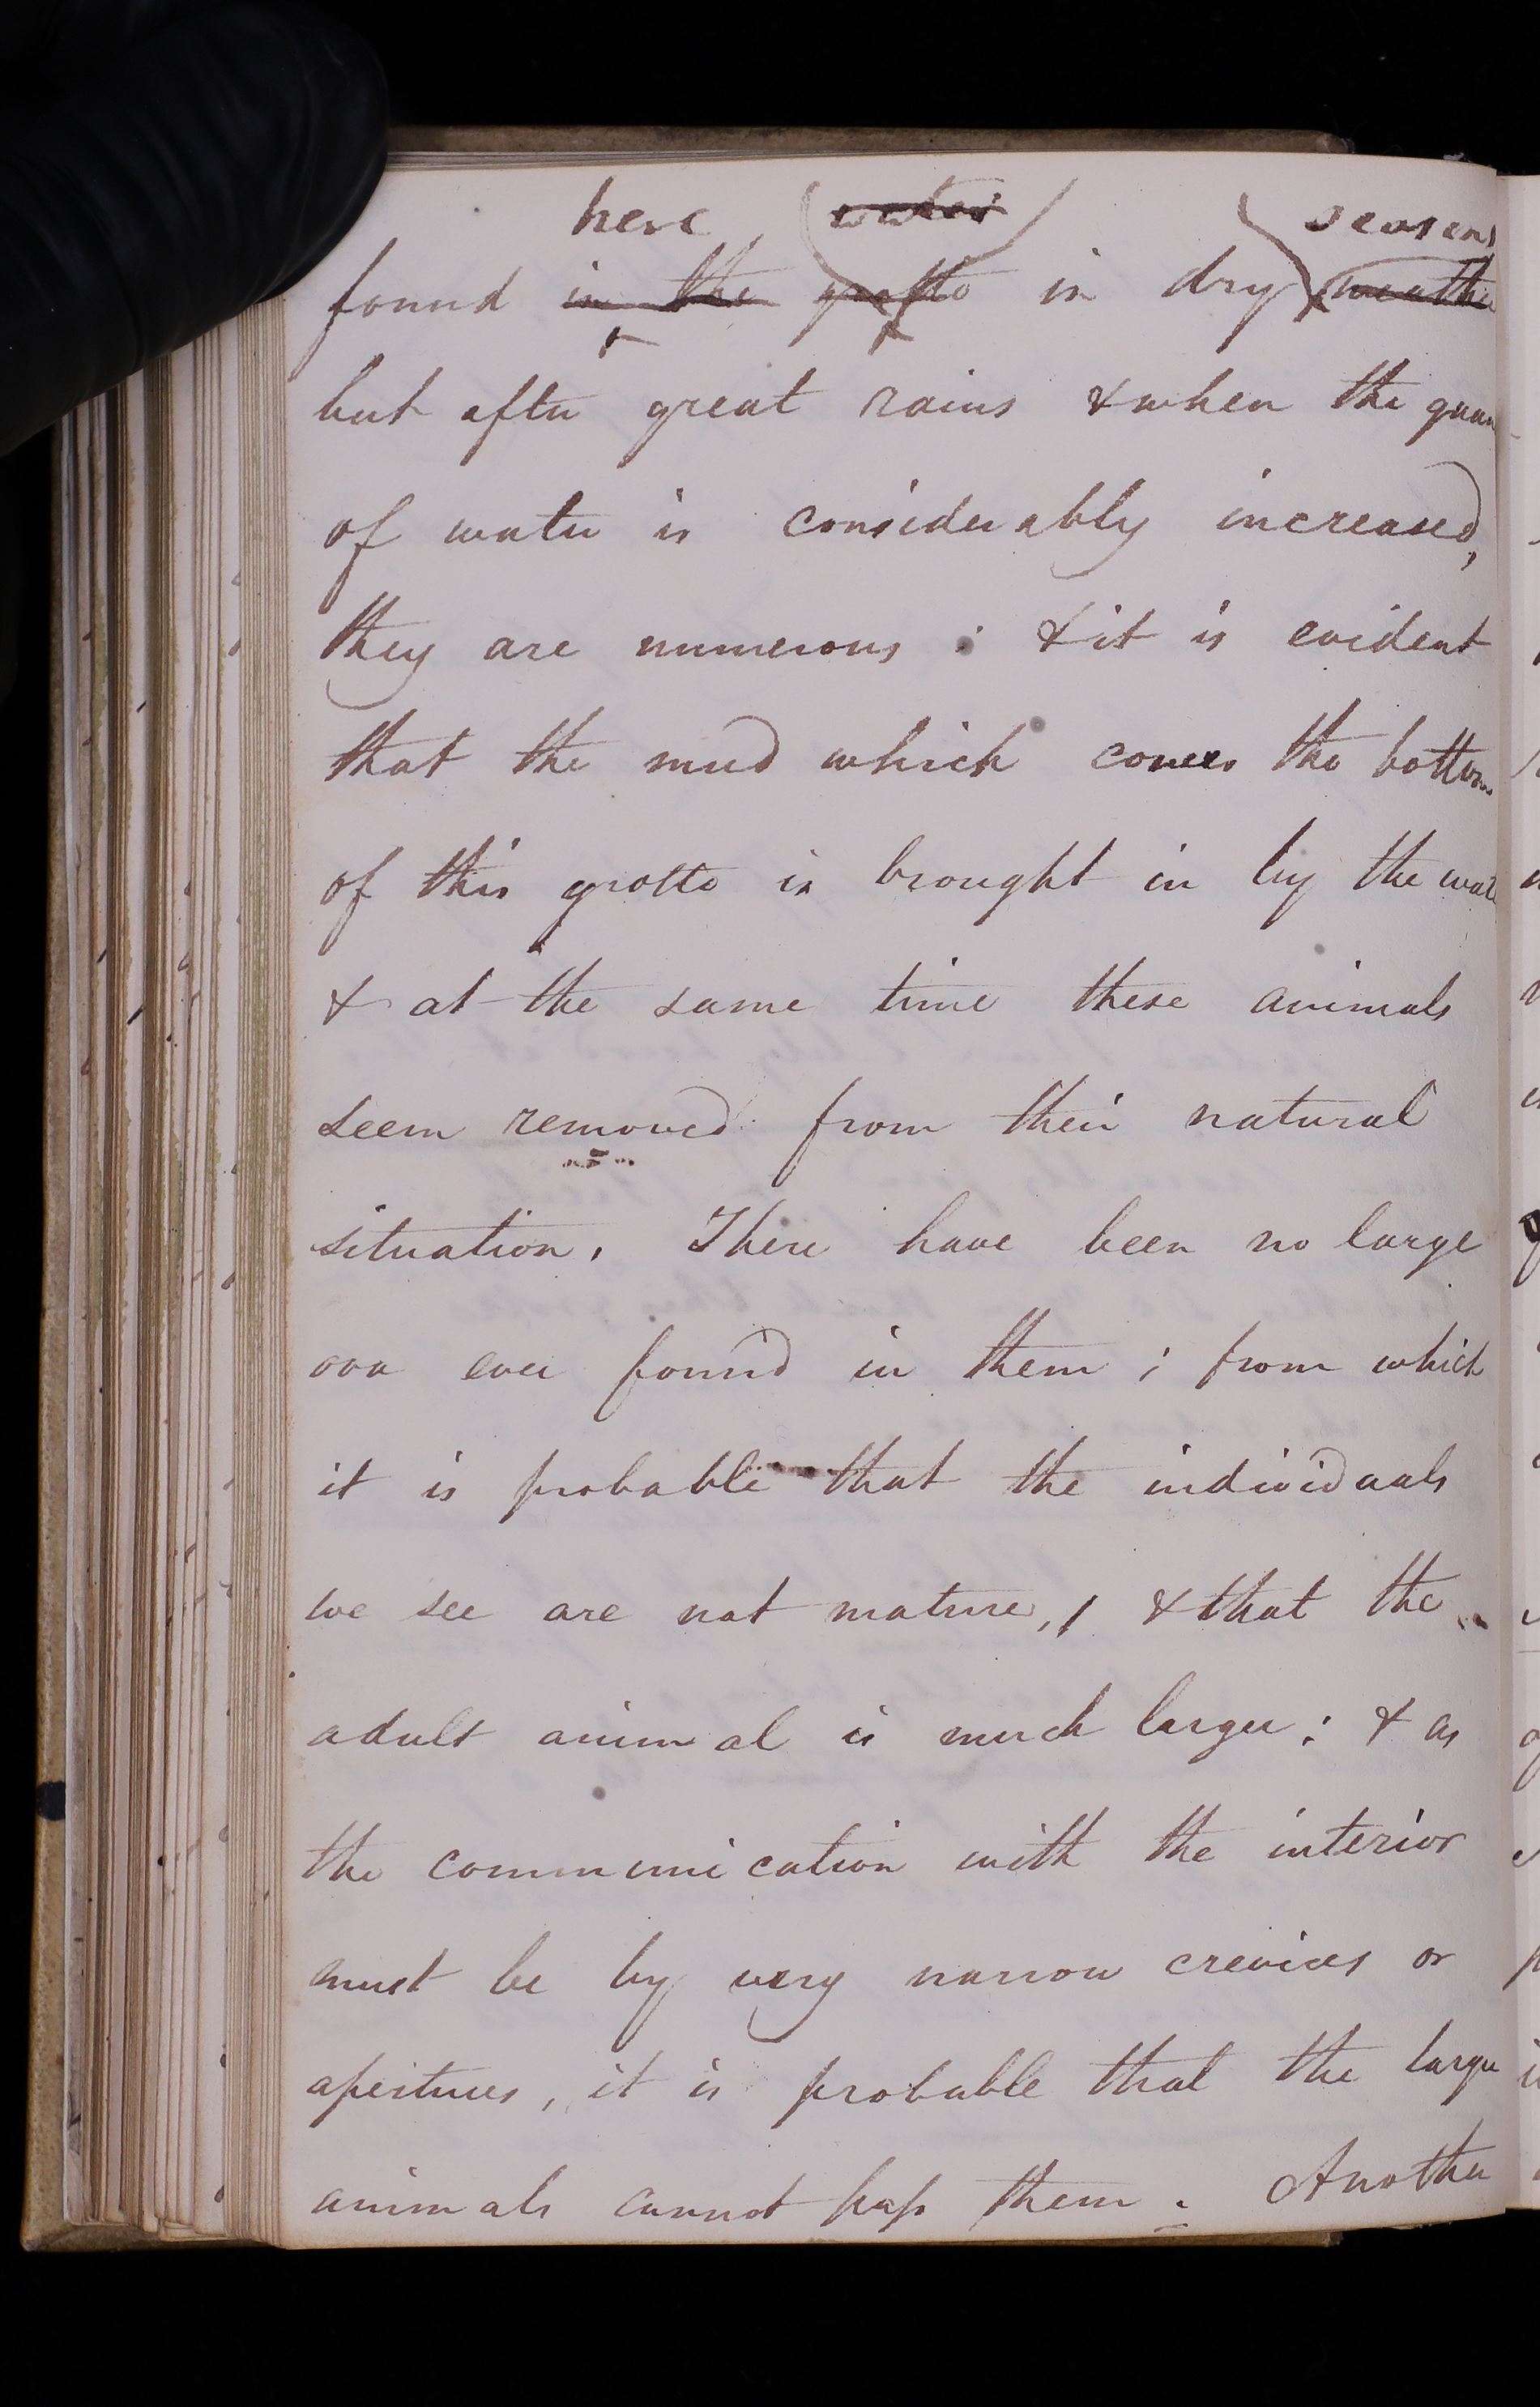 here water seasons
found in the grotto in dry weathe
but after great rains & when the quan
of water is considerably increased,
they are numerous : & it is evident
that the mud which covers the bottom
of this grotto is brought in by the wat
& at the same time these animals
seem removed from their natural
situation. There have been no large
ova ever found in them ; from which
it is probable that the individuals
we see are not mature, & that the
adult animal is much larger : & as
the communication with the interior
must be by very narrow crevices or
apertures, it is probable that the large
animals cannot pass them . Another